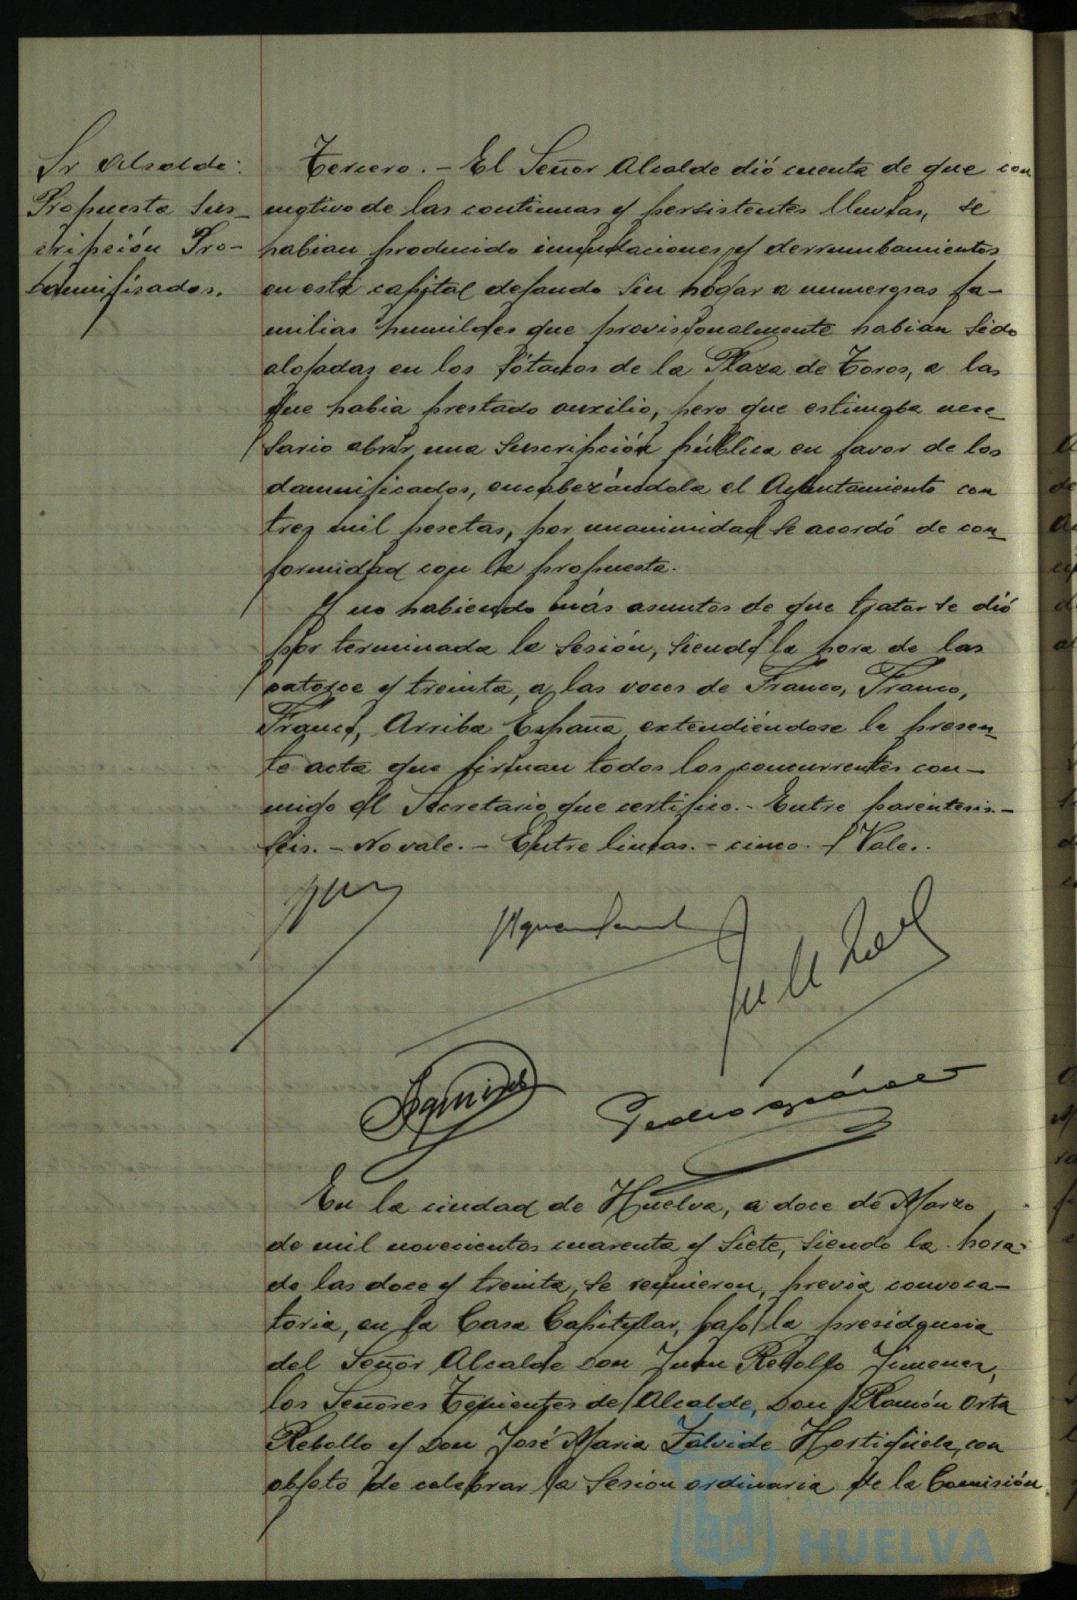 Sr Alcalde:
Propuesta Sus-
cripción Pro-
damnificados.
Tercero. - El Señor Alcalde dió cuenta de que con
motivo de las continuas y persistentes lluvias, se
habian producido inundaciones y derrumbamientos
en esta capital dejando sin hogar a numerosas fa-
milias humildes que provisionalmente habian sido
alojadas en los sótanos de la Plaza de Toros, a las
que habia prestado auxilio, pero que estimaba nece-
sario abrir una suscripción pública en favor de los
damnificados, encabezándola el Ayuntamiento con
tres mil pesetas, por unanimidad se acordó de con-
formidad con la propuesta.
Y no habiendo más asuntos de que tratar se dió
por terminada la sesión, siendo la hora de las
catorce y treinta, a las voces de Franco, Franco,
Franco, Arriba España, extendiéndose la presen-
te acta que firman todos los concurrentes con-
migo el Secretario que certifico. - Entre paréntesis. -
Seis. - No vale. - Entre lineas. - cinco. - Vale.
En la ciudad de Huelva, a doce de Marzo
de mil novecientos cuarenta y siete, siendo la hora
de las doce y treinta, se reunieron, previa convoca-
toria, en la Casa Capitular, bajo la presidencia
del Señor Alcalde Don Juan Rebollo Jimenez,
los Señores Tenientes de Alcalde, Don Ramón Orta
Rebollo y Don José Maria Zalvide Hortigüela, con
objeto de celebrar la sesión ordinaria de la Comisión
Ayuntamiento de
HUELVA